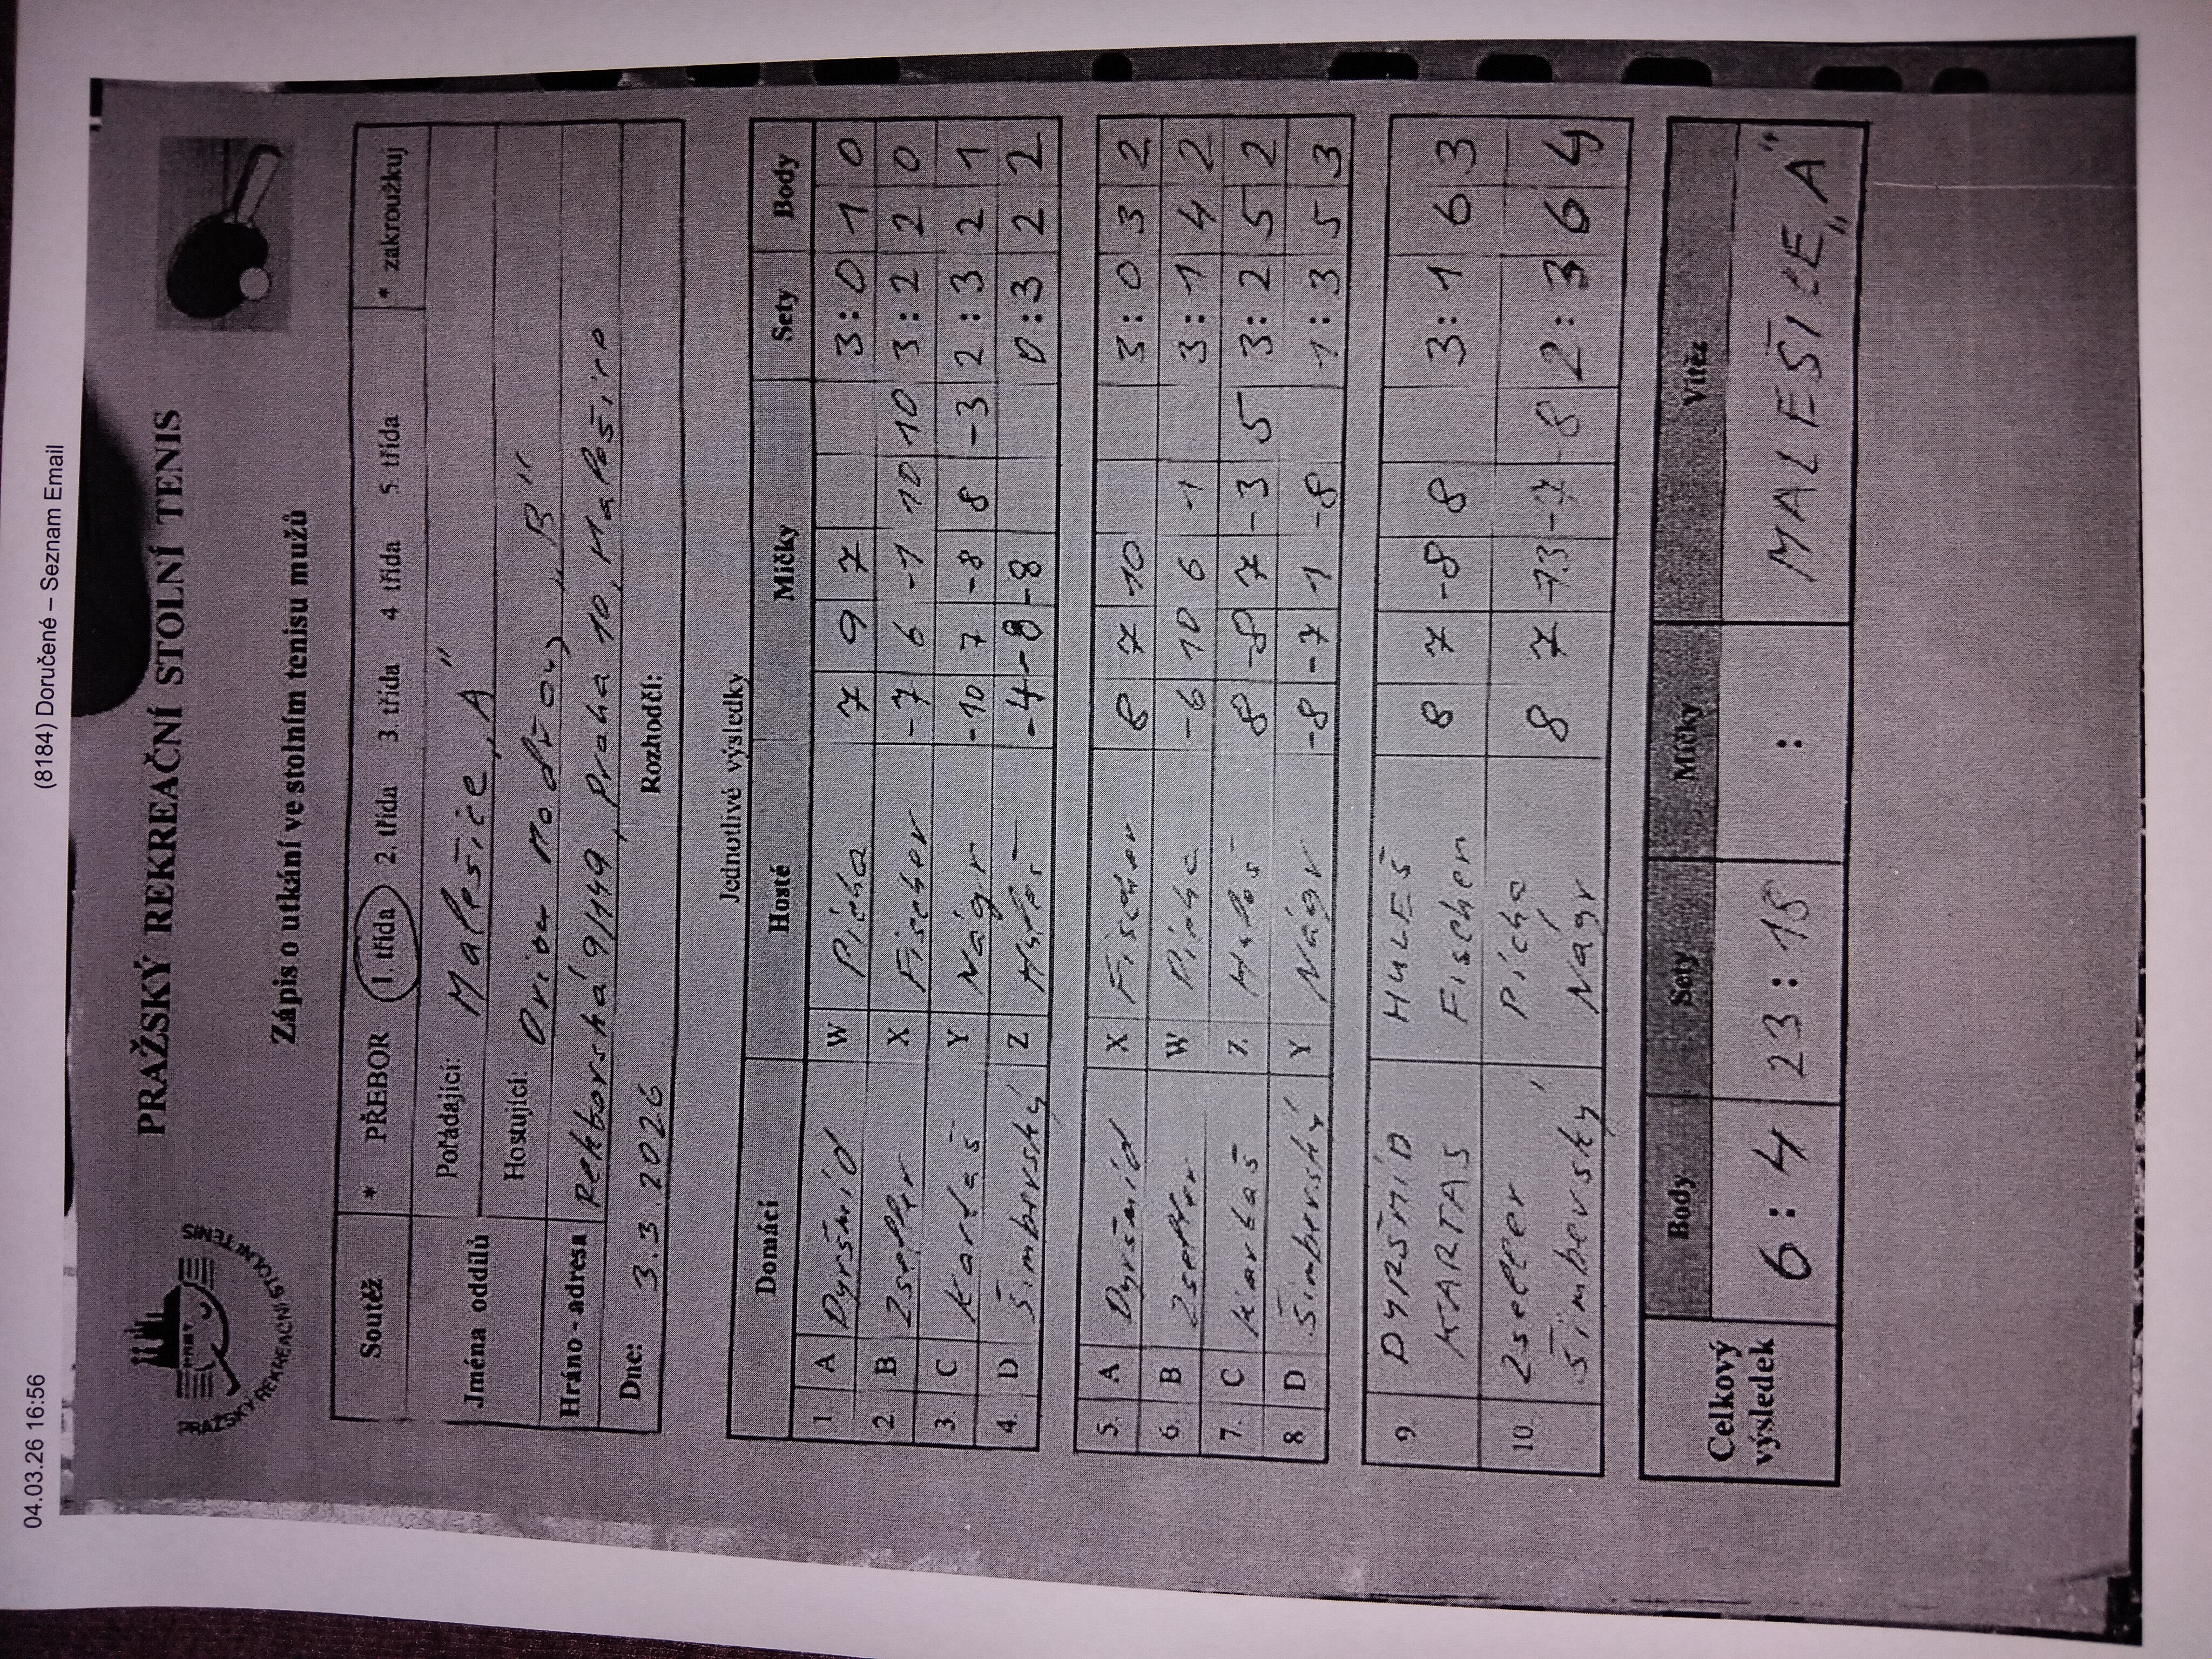 04.03.26 16:56 (8184) Doručené – Seznam Email
PRAŽSKÝ REKREAČNÍ STOLNÍ TENIS
PRAŽSKÝ REKREAČNÍ STOLNÍ TENIS
Zápis o utkání ve stolním tenisu mužů
Soutěž * PŘEBOR 1. třída 2. třída 3. třída 4 třída 5. třída * zakroužkuj
Jména oddílů Pořádající: Malešice „A"
Hostující: Orion Modřany „B"
Hráno - adresa Rektorská 9/449, Praha 10, Malešice
Dne: 3.3.2026 Rozhodčí:
Jednotlivé výsledky
Domácí Hosté Míčky Sety Body
1. A Dyršmíd W Pícha 7 9 7 3:0 1 0
2. B Zseller X Fischer -7 6 -1 10 10 3:2 2 0
3. C Kartas Y Nágr -10 7 -8 8 -3 2:3 2 1
4. D Šimberský Z Huleš -4 -8 -8 0:3 2 2
5. A Dyršmíd X Fischer 8 7 10 3:0 3 2
6. B Zseller W Pícha -6 10 6 1 3:1 4 2
7. C Kartas Z Huleš 8 -8 7 -3 5 3:2 5 2
8 D Šimberský Y Nágr -8 -7 1 -8 1:3 5 3
9. DYRŠMÍD HULEŠ 8 7 -8 8 3:1 6 3
KARTAS Fischer
10. Zseller Pícha 8 7 -13 -7 -8 2:3 6 4
Šimberský Nágr
Celkový výsledek Body Sety Míčky Vítěz
6:4 23:18 : MALEŠICE „A"